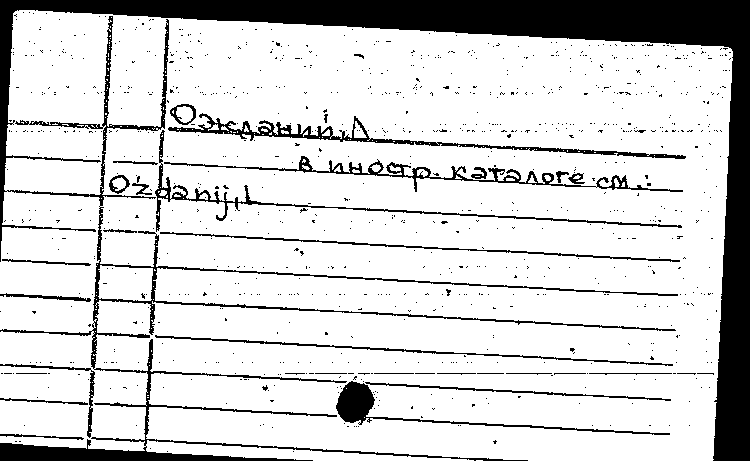 Ожданий, Л
в иностр. каталоге см.:
Oždanij, L